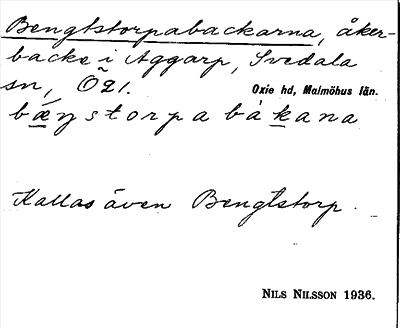 Bengtstorpabackarna, åker-
backe i Aggarp, Svedala
sn, Ö21. Oxie hd, Malmöhus län.
bæŋstorpabàkana
Kallas även Bengtstorp.
NILS NILSSON 1936.